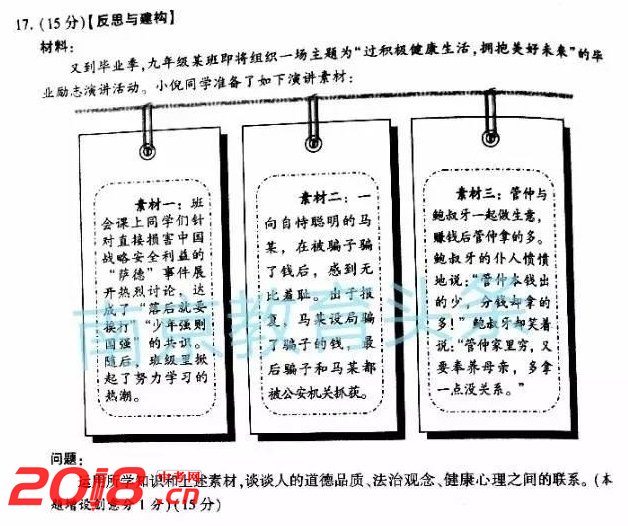 17. (15分)【反思与建构】
材料:
又到毕业季,九年级某班即将组织一场主题为“过积极健康生活,拥抱美好未来”的毕
业励志演讲活动。小倪同学准备了如下演讲素材:
素材一:班
会课上同学们针
对直接损害中国
战略安全利益的
“萨德”事件展
开热烈讨论,达
成了“落后就要
挨打”“少年强则
国强”的共识。
随后,班级里掀
起了努力学习的
热潮。
素材二:一
向自恃聪明的马
某,在被骗子骗
了钱后,感到无
比羞耻。出于报
复,马某设局骗
了骗子的钱,最
后骗子和马某都
被公安机关抓获。
素材三:管仲与
鲍叔牙一起做生意,
赚钱后管仲拿的多。
鲍叔牙的仆人愤愤
地说:“管仲本钱出
的少,分钱却拿的
多!”鲍叔牙却笑着
说:“管仲家里穷,又
要奉养母亲,多拿
一点没关系。”
南京教育头条
问题:
运用所学知识和上述素材,谈谈人的道德品质、法治观念、健康心理之间的联系。(本
题增设创意分1分)(15分)
2018中考网.cn